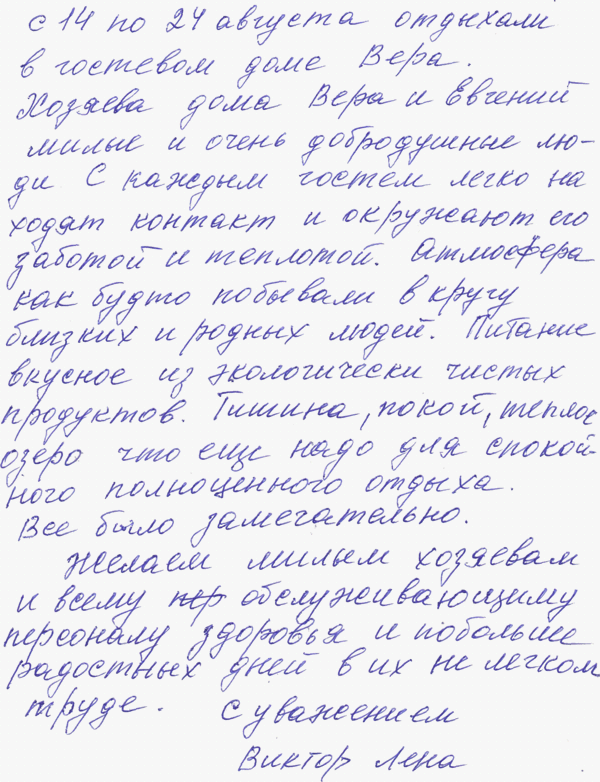 с 14 по 24 августа отдыхали
в гостевом доме Вера.
Хозяева дома Вера и Евгений
милые и очень добродушные лю-
ди С каждым гостем легко на
ходят контакт и окружают его
заботой и теплотой. Атмосфера
как будто побывали в кругу
близких и родных людей. Питание
вкусное из экологически чистых
продуктов. Тишина, покой, теплое
озеро что еще надо для спокой-
ного полноценного отдыха.
Все было замечательно.
Желаем милым хозяевам
и всему пер обслуживающиму
персоналу здоровья и побольше
радостных дней в их не легком
труде. С уважением
Виктор Лена